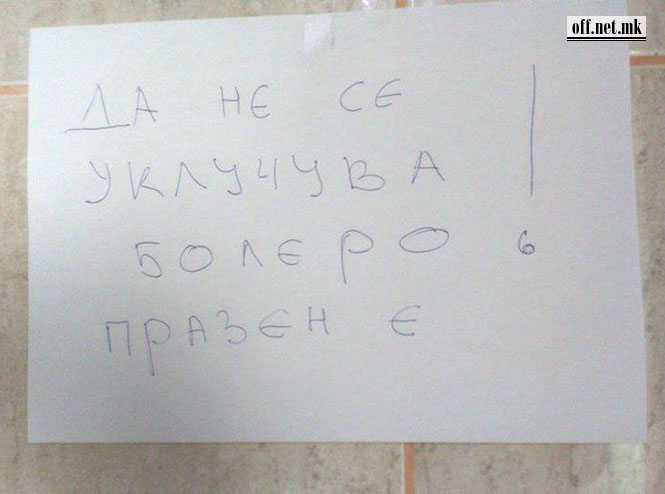 off.net.mk
ДА НЕ СЕ
УКЛУЧУВА !
БОЛЕРО
ПРАЗЕН Е